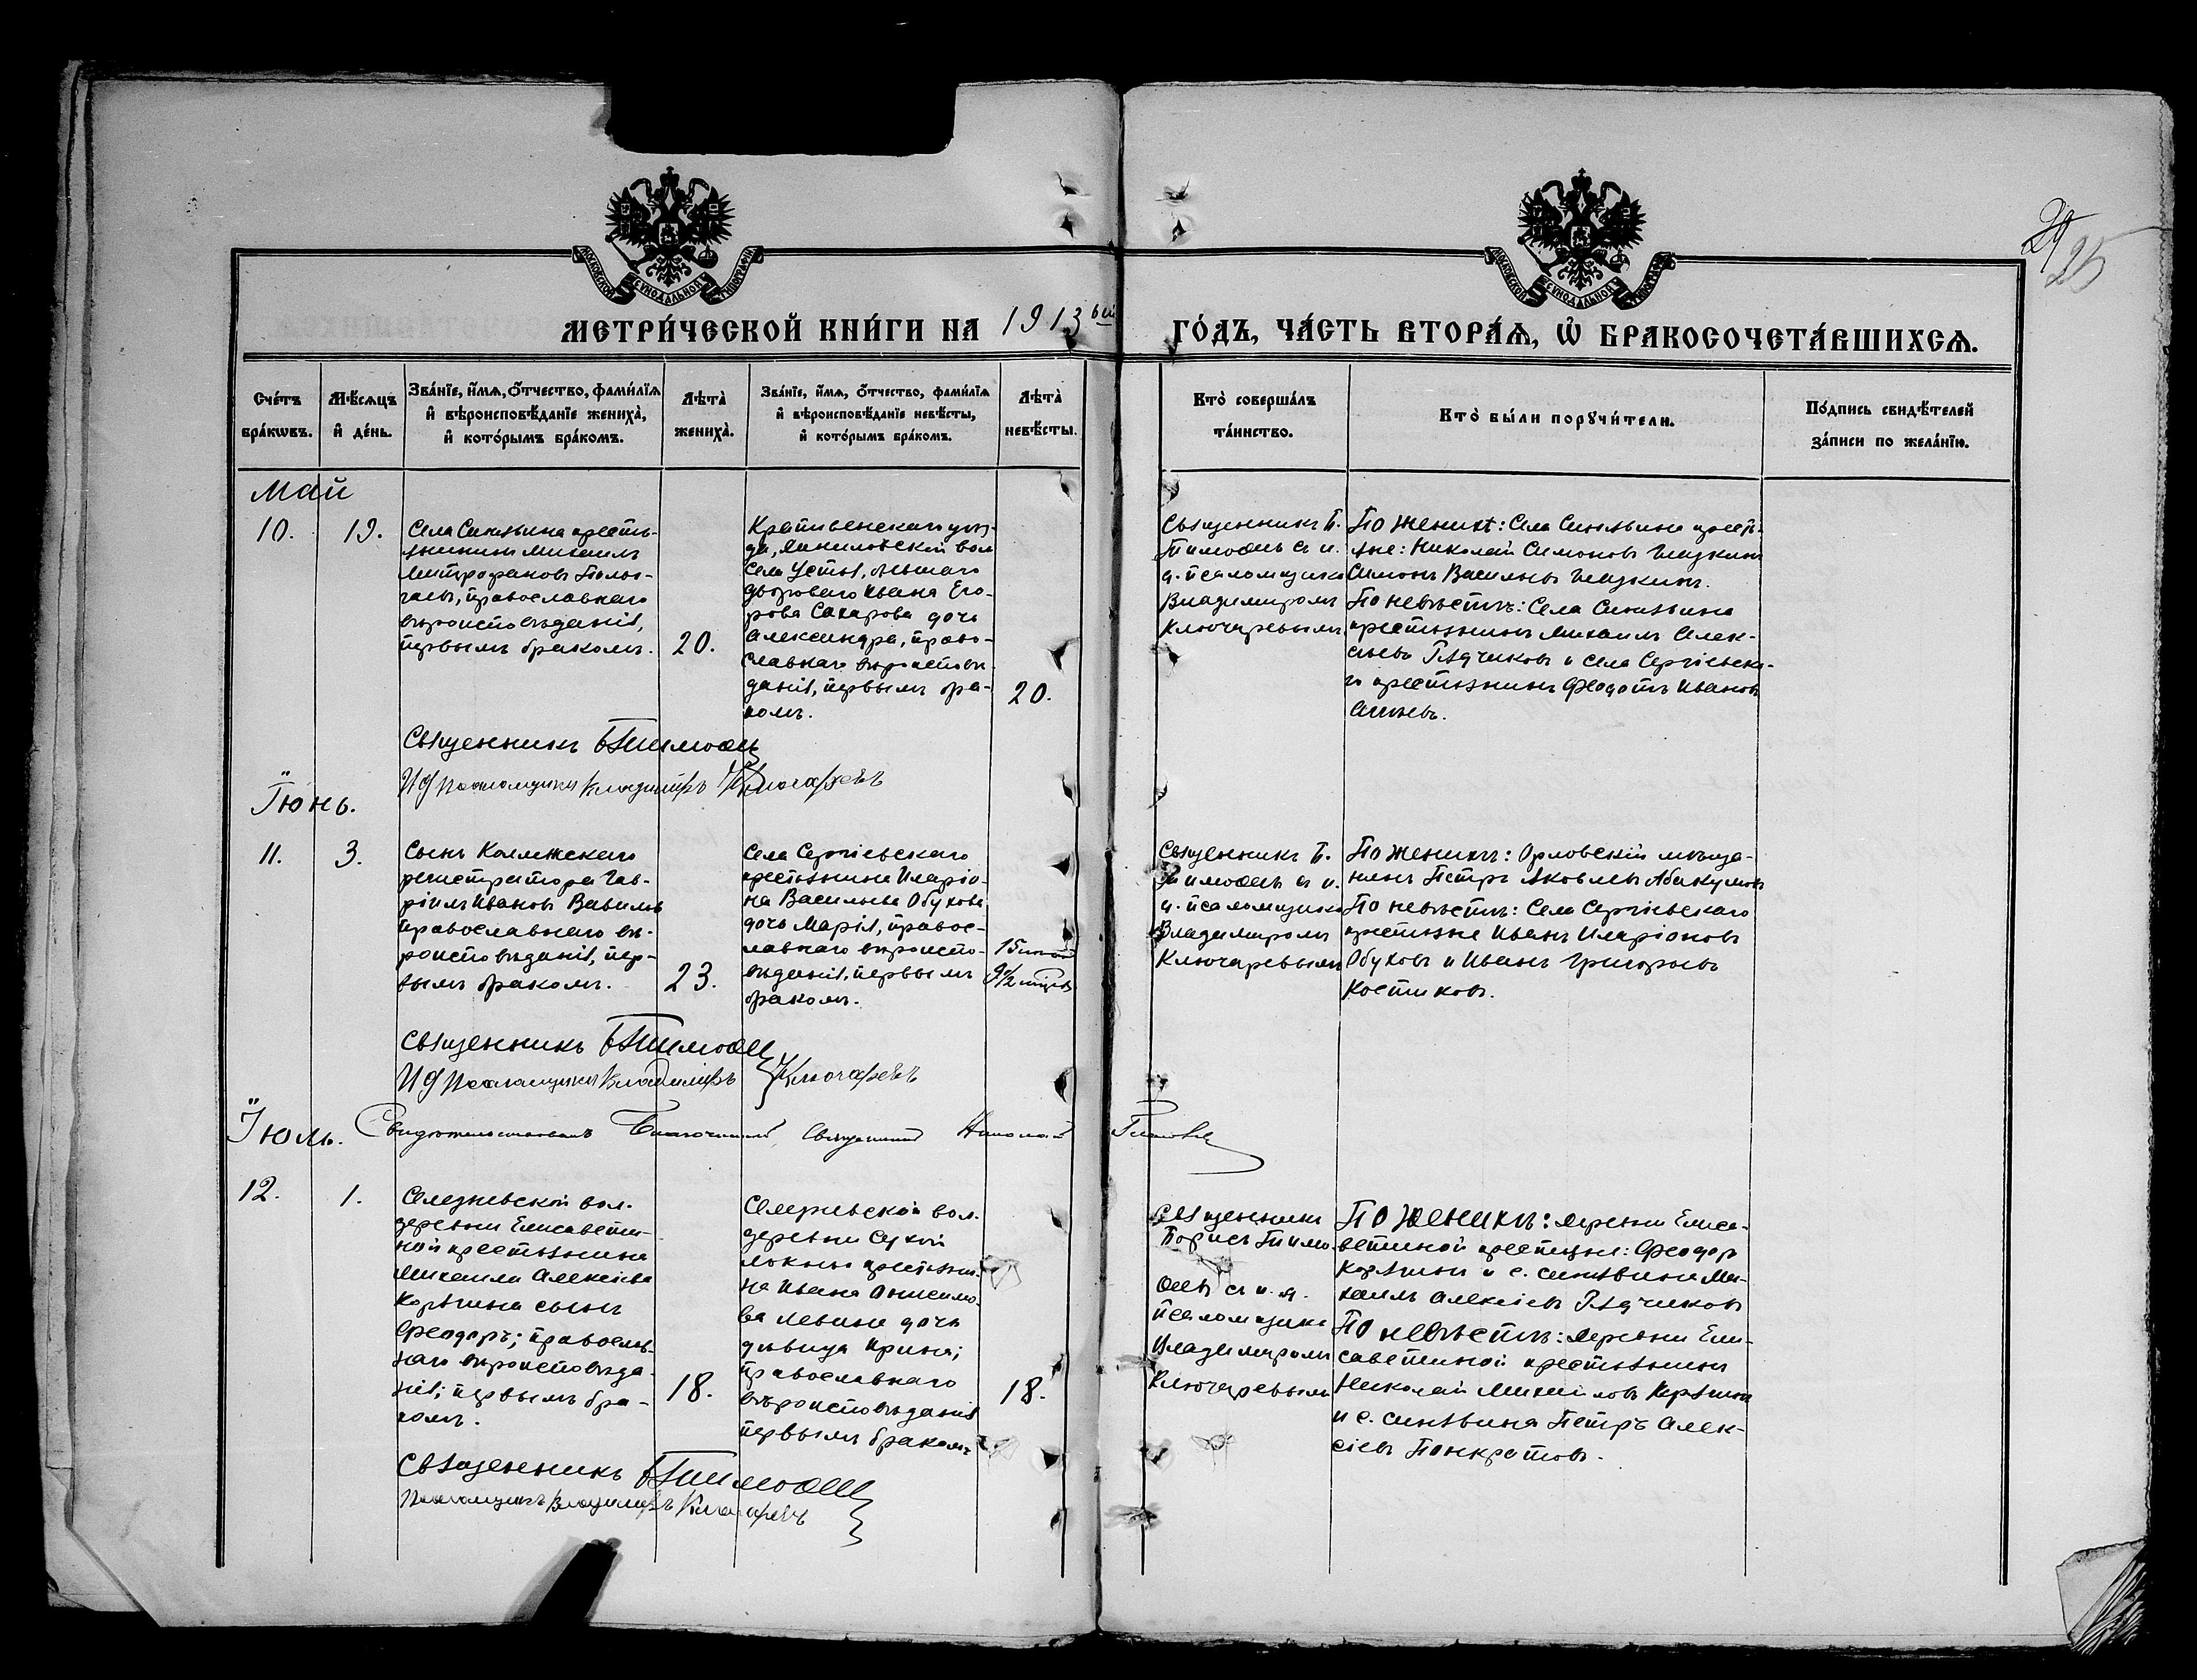 24
25
МЕТРИ́ЧЕСКОЙ КНИ́ГИ НА 1913ый ГО́ДЪ, ЧА́СТЬ ВТОРА́Ѧ, Ѡ҆ БРАКОСОЧЕТА́ВШИХСѦ.
МОСКОВСКОЙ СѴНОДАЛЬНОЙ ТИПОГРАФІИ
МОСКОВСКОЙ СѴНОДАЛЬНОЙ ТИПОГРАФІИ
Сче́тъ бра́кѡвъ.
Мѣ́сѧцъ и҆ де́нь.
Зва́нїе, и҆́мѧ, ѻ҆́тчество, фами́лїѧ
и҆ вѣроисповѣ́данїе жениха̀,
и҆ кото́рымъ бра́комъ.
Лѣта̀ жениха̀.
Зва́нїе, и҆́мѧ, ѻ҆́тчество, фами́лїѧ
и҆ вѣроисповѣ́данїе невѣ́сты,
и҆ кото́рымъ бра́комъ.
Лѣта̀ невѣ́сты.
Кто̀ соверша́лъ
та́инство.
Кто̀ бы́ли порꙋчи́тели.
По́дпись свидѣ́телей
за́писи по жела́нїю.
Май
10.
19.
Села Синявина кресть-
янинъ Михаилъ
Митрофановъ
православнаго
вѣроисповѣданія,
первымъ бракомъ.
20.
Села Устья,
двороваго Ивана Его-
рова Сахарова дочь
Александра, право-
славнаго вѣроисповѣ-
данія, первымъ бра-
комъ.
20.
Священникъ Б.
Тимофеевъ съ и.
д. псаломщика
Владимиромъ
Ключаревымъ
По женихѣ: Села Синявина кресть-
яне: Николай Симоновъ
Симонъ Васильевъ
По невѣстѣ: Села Синявина
крестьянинъ Михаилъ Алек-
сѣевъ Рядчиковъ и села Сергіевска-
го крестьянинъ Феодотъ Ивановъ
Священникъ Б Тимофеев
ИД Псаломщика Владиміръ Ключаревъ
Іюнь.
11.
3.
Сынъ Коллежскаго
регистратора Гав-
ріилъ Ивановъ Вавиловъ
православнаго вѣ-
роисповѣданія, пер-
вымъ бракомъ.
23.
Села Сергіевскаго
крестьянина Иларіо-
на Васильева Обухова
дочь Марія, правос-
лавнаго вѣроиспо-
вѣданія, первымъ
бракомъ.
15 лѣтъ
9½ мѣсяц.
Священникъ Б.
Тимофеевъ съ и.
д. псаломщика
Владимиромъ
Ключаревымъ
По женихѣ: Орловскій мѣща-
нинъ Петръ Яковлевъ Абакумовъ
По невѣстѣ: Села Сергіевскаго
крестьяне Иванъ Иларіоновъ
Обуховъ и Иванъ Григорьевъ
Костиковъ.
Священникъ Б Тимофеев
ИД Псаломщика Владиміръ Ключаревъ
Іюль.
Свидѣтельствовалъ Благочинный, Священникъ Николай
12.
1.
Селезневской вол.
деревни Елисавети-
ной крестьянина
Михаила Алексіева
Карягина сынъ
Феодоръ; православ-
наго вѣроисповѣда-
нія; первымъ бра-
комъ.
18.
вол.
деревни Сухой
крестьяни-
на Ивана Онисимо-
ва Левина дочь
дѣвица Ирина;
православнаго
вѣроисповѣданія
первымъ бракомъ
18.
Священникъ
Борисъ Тимо-
феевъ съ и. д.
псаломщика
Владимиромъ
Ключаревымъ
По женихѣ: деревни Елиса-
ветиной крестьяне: Феодоръ
Карягинъ и с. Синявина Ми-
хаилъ Алексіевъ Рядчиковъ
По невѣстѣ: деревни Ели-
саветиной крестьянинъ
Николай Михаиловъ Карягинъ
и с. Синявина Петръ Алек-
сіевъ Понкратовъ.
Священникъ Б Тимофеев
Псаломщикъ Владиміръ Ключаревъ